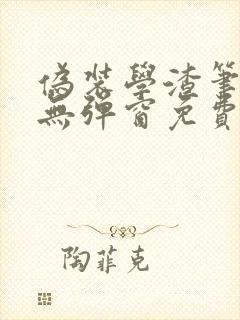 偽裝學渣筆
無彈窗免費
陶菲克